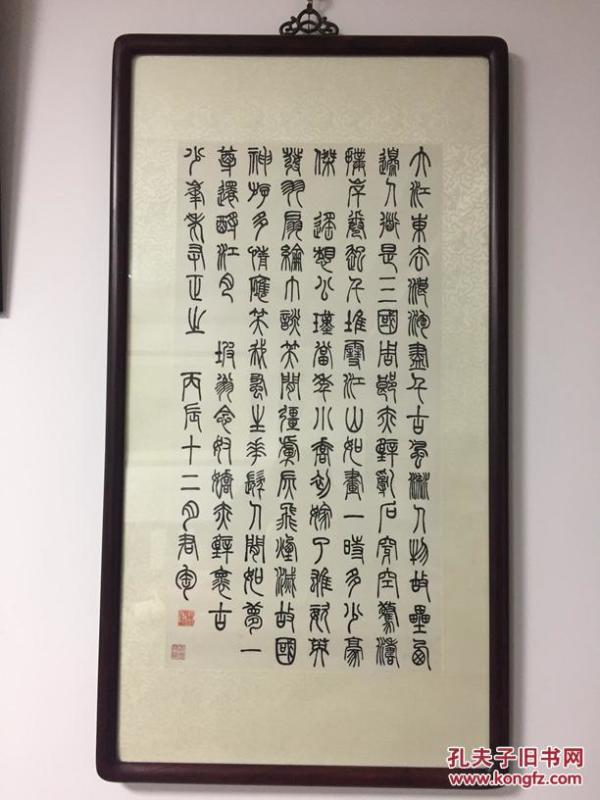 大江東去浪淘盡千古風流人物故壘西
邊人道是三國周郎赤壁亂石穿空驚濤
岸卷起千堆雪江山如畫一時多少豪
傑　遙想公瑾當年小喬初嫁了雄姿英
發羽扇綸巾談笑間彊虜灰飛煙滅故國
神游多情應笑我早生華髮人間如夢一
尊還酹江月　坡翁念奴嬌赤壁懷古
少正之　丙辰十二月君匋
孔夫子旧书网
www.kongfz.com